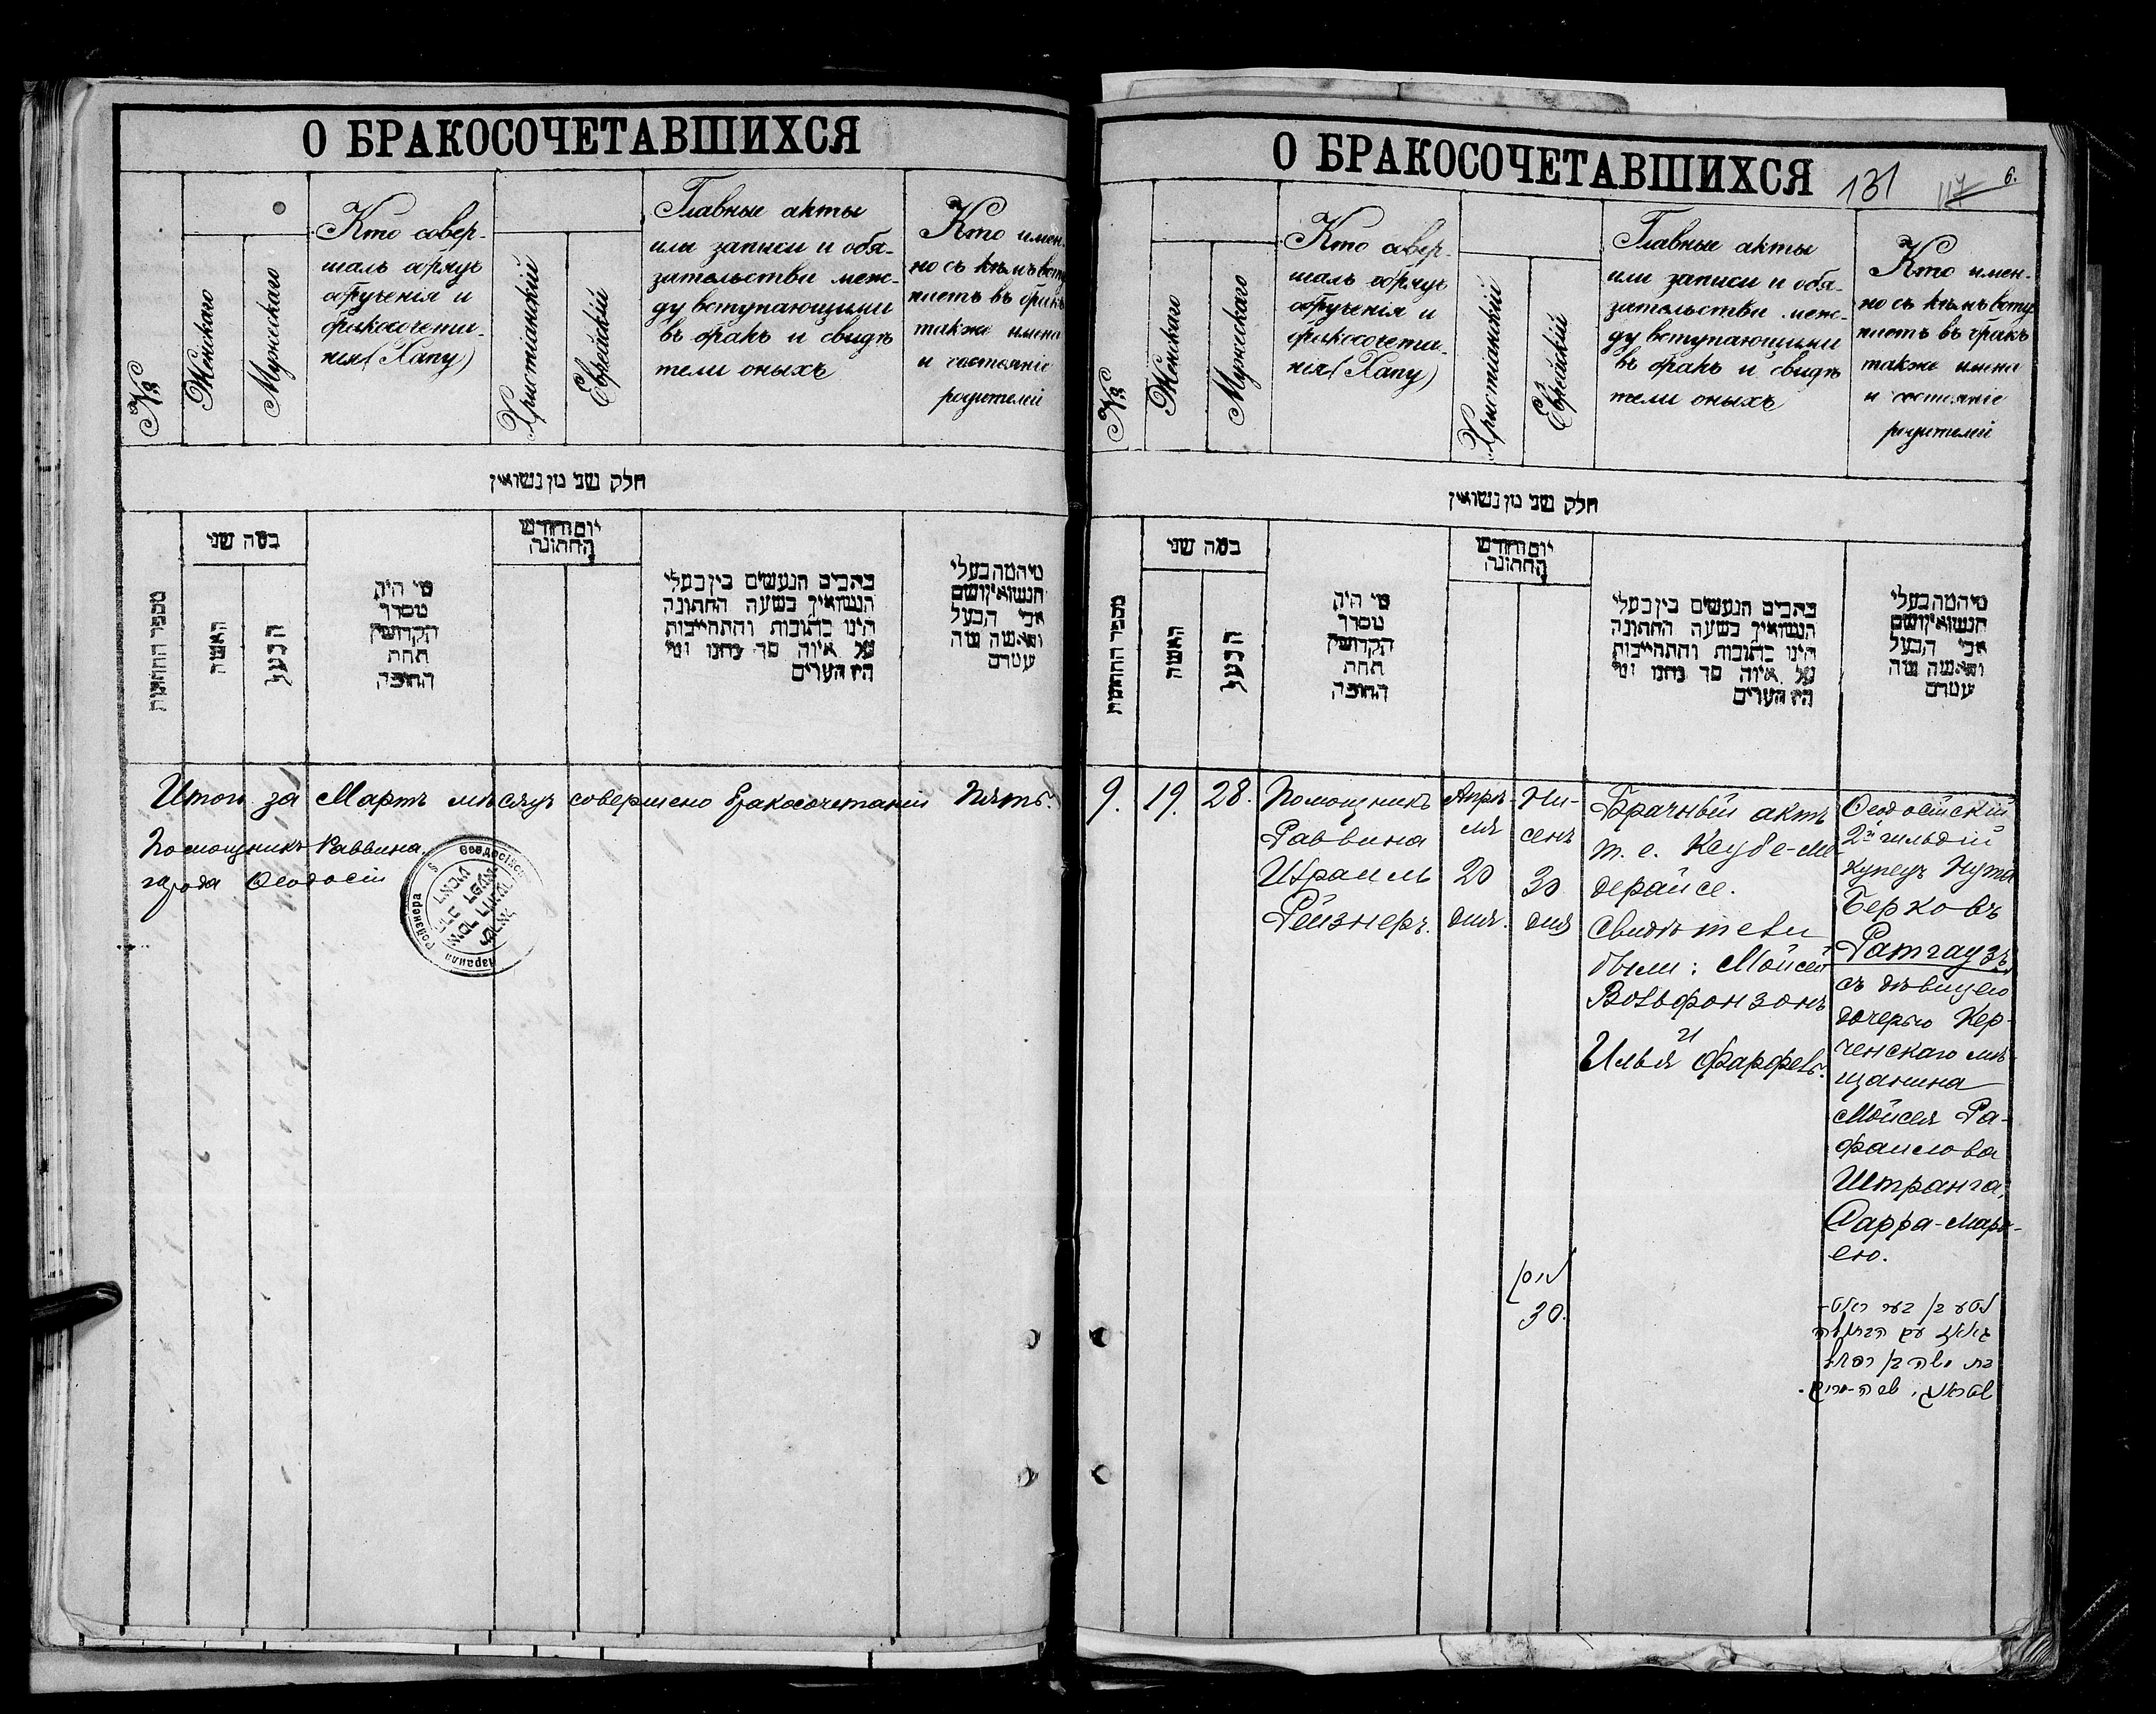 О БРАКОСОЧЕТАВШИХСЯ
№
Женскаго
Мужескаго
Кто совер-
шалъ обрядъ
обрученія и
бракосочета-
нія (Хапу)
Христіанскій
Еврейскій
Главные акты
или записи и обя-
зательства меж-
ду вступающими
въ бракъ и свидѣ
тели оныхъ
Кто имен-
но съ кѣмъ всту
паетъ въ бракъ
также имена
и состояніе
родителей
חלק שני מן נשואין
מספר החתונות
כמה שני
האשה
הבעל
מי היה
מסדר
הקדושין
תחת
החופה
יום וחודש
החתונה
כתבים הנעשים בין בעלי
הנשואין בשעה החתונה
הינו כתובות והתחייבות
על איזה סך נתנו ומי
היו העדים
מי המה בעלי
הנשואין ושם
אבי הבעל
והאשה
Итого за Мартъ мѣсяцъ совершено бракосочетаній пять.
Помощникъ Раввина
города Ѳеодосіи
О БРАКОСОЧЕТАВШИХСЯ
131
117
6.
№
Женскаго
Мужескаго
Кто совер-
шалъ обрядъ
обрученія и
бракосочета-
нія (Хапу)
Христіанскій
Еврейскій
Главные акты
или записи и обя-
зательства меж-
ду вступающими
въ бракъ и свидѣ
тели оныхъ
Кто имен-
но съ кѣмъ всту
паетъ въ бракъ
также имена
и состояніе
родителей
חלק שני מן נשואין
מספר החתונות
כמה שני
האשה
הבעל
מי היה
מסדר
הקדושין
תחת
החופה
יום וחודש
החתונה
כתבים הנעשים בין בעלי
הנשואין בשעה החתונה
הינו כתובות והתחייבות
על איזה סך נתנו ומי
היו העדים
מי המה בעלי
הנשואין ושם
אבי הבעל
והאשה
9. 19. 28.
Помощникъ
Раввина
Израиль
Рейзнеръ.
Апрѣ
ля
20
дня.
Ни-
сенъ
30
дня
ניסן
30.
Брачный актъ
т. е. Ксубе-ме-
дерайсе.
Свидѣтели
были: Мойсей
Вольфонзонъ
и
Илья Фарфель.
Ѳеодосійскій
2й гильдіи
купецъ Нута
Берковъ
Ратгаузъ
съ дѣвицею
дочерью Кер-
ченскаго мѣ-
щанина
Мойсея Ра-
фаилова
Штранга,
Сарра-Марь-
ею.
נטע בן בער ראט-
הויז עם הבתולה
בת משה בן רפאל
שטראנג, שרה-מרים.